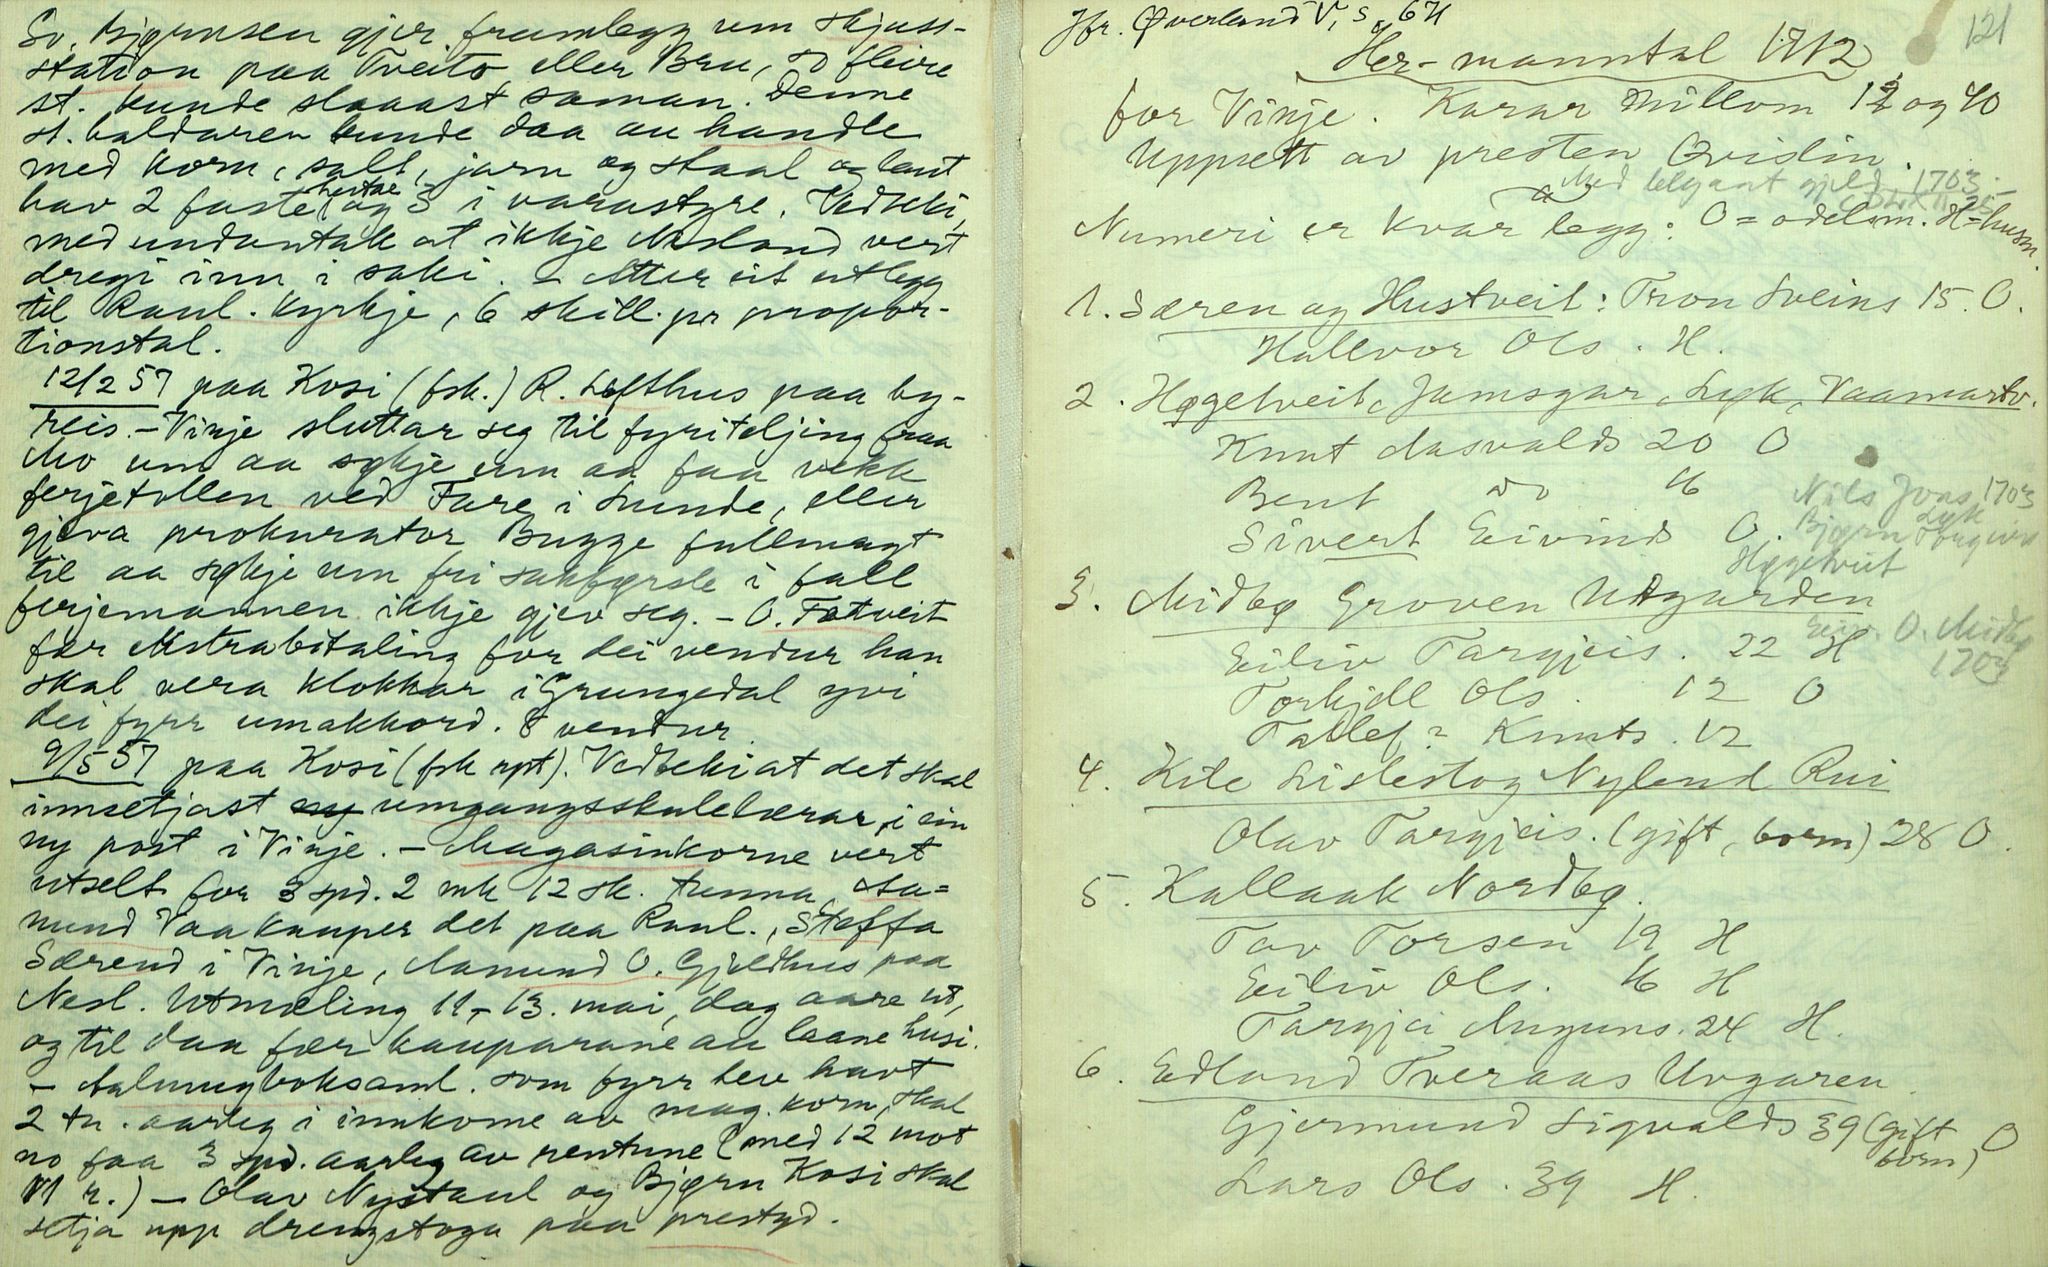 Sv. Bjørnsen gjer framlegg um skjuss-
station paa Tveito eller Bru, so fleire
st. kunde slaaast saman. Denne
st. haldaren kunde daa au handle
med korn, salt, jarn og staal og laut
hav 2 faste hestar og 3 i varastyre. Vedteki,
med undantak at ikkje Nesland vert
dregi inn i saki. – Atter eit utlegg
til Raul. kyrkje, 6 skill. pr propor-
tionstal.
12/2 57 paa Kosi (fsk.) R. Lofthus paa by-
reis. – Vinje sluttar seg til fyriteljing fraa
Mo um aa søkje um aa faa vekk
ferjetollen ved Fare i Lunde, eller
gjeva prokurator Bugge fullmagt
til aa søkje um fri sakførsle i fall
ferjemannen ikkje gjev seg. – O. Fotveit
fær ekstrabetaling for dei vendur han
skal vera klokkar i Grungedal yvi
dei fyrr umakkord. 8 vendur
9/5 57 paa Kosi (fsk rpt). Vedteki at det skal
innsetjast umgangsskulelærar i ein
ny post i Vinje. – Magasinkorne vert
utselt for 3 spd. 2 mk 12 sk. tunna, Aa-
mund Vaa kauper det paa Raul., Steffa
Særend i Vinje, Aamund O. Gjeldhus paa
Nesl. Utmæling 11,- 13. mai, dag aare ut,
og til daa fær kauparane au laane husi.
– Aalmugboksaml. som fyrr hev havt
2 tn. aarleg i innkome av mag. korn, skal
no faa 3 spd. aarleg av rentune (med 12 mot
11 r.) – Olav Nystaul og Bjørn Kosi skal
setja upp drengstoga paa prestgd.
Jfr. Øverland V, s. 64
121
Her-manntal 1712
for Vinje. Karar millom 12 og 40
Uppsett av presten Qvislin.
Med gjeld 1703
Numeri er kvar legg: O = odelsm. H = husm.
1. Særen og Hustveit: Tron Sveins 15. O.
Hallvor Ols. H.
2. Høgetveit, Jamsgar, Lyk, Vaamartv.
Knut Aasvalds 20 O
Bent do 16
Sivert Eivinds O.
Nils Jons 1703
Lyk
Bjørn Torgivs
Høgetveit
3. Midbø Groven Utgarden
Eiv. O. Midbø
1703
Eiliv Targjeis. 22 H
Torkjell Ols. 12 O
Tallef? Knuts. 12
4. Kile Lislestog Nylend Rui
Olav Targjeis. (gift, born) 28 O.
5. Kallaak Nordbø.
Tov Torsen 19 H
Eiliv Ols. 16 H
Targjei Auguns. 24 H.
6. Edland Tveraas Uvgaren
Gjermund Sigvalds 39 (gift born) O
Lars Ols. 39 H.